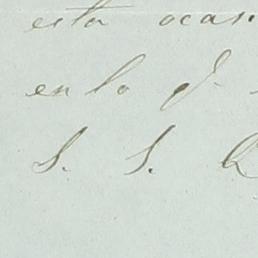 esta ocas
en lo q.
S. S. Q